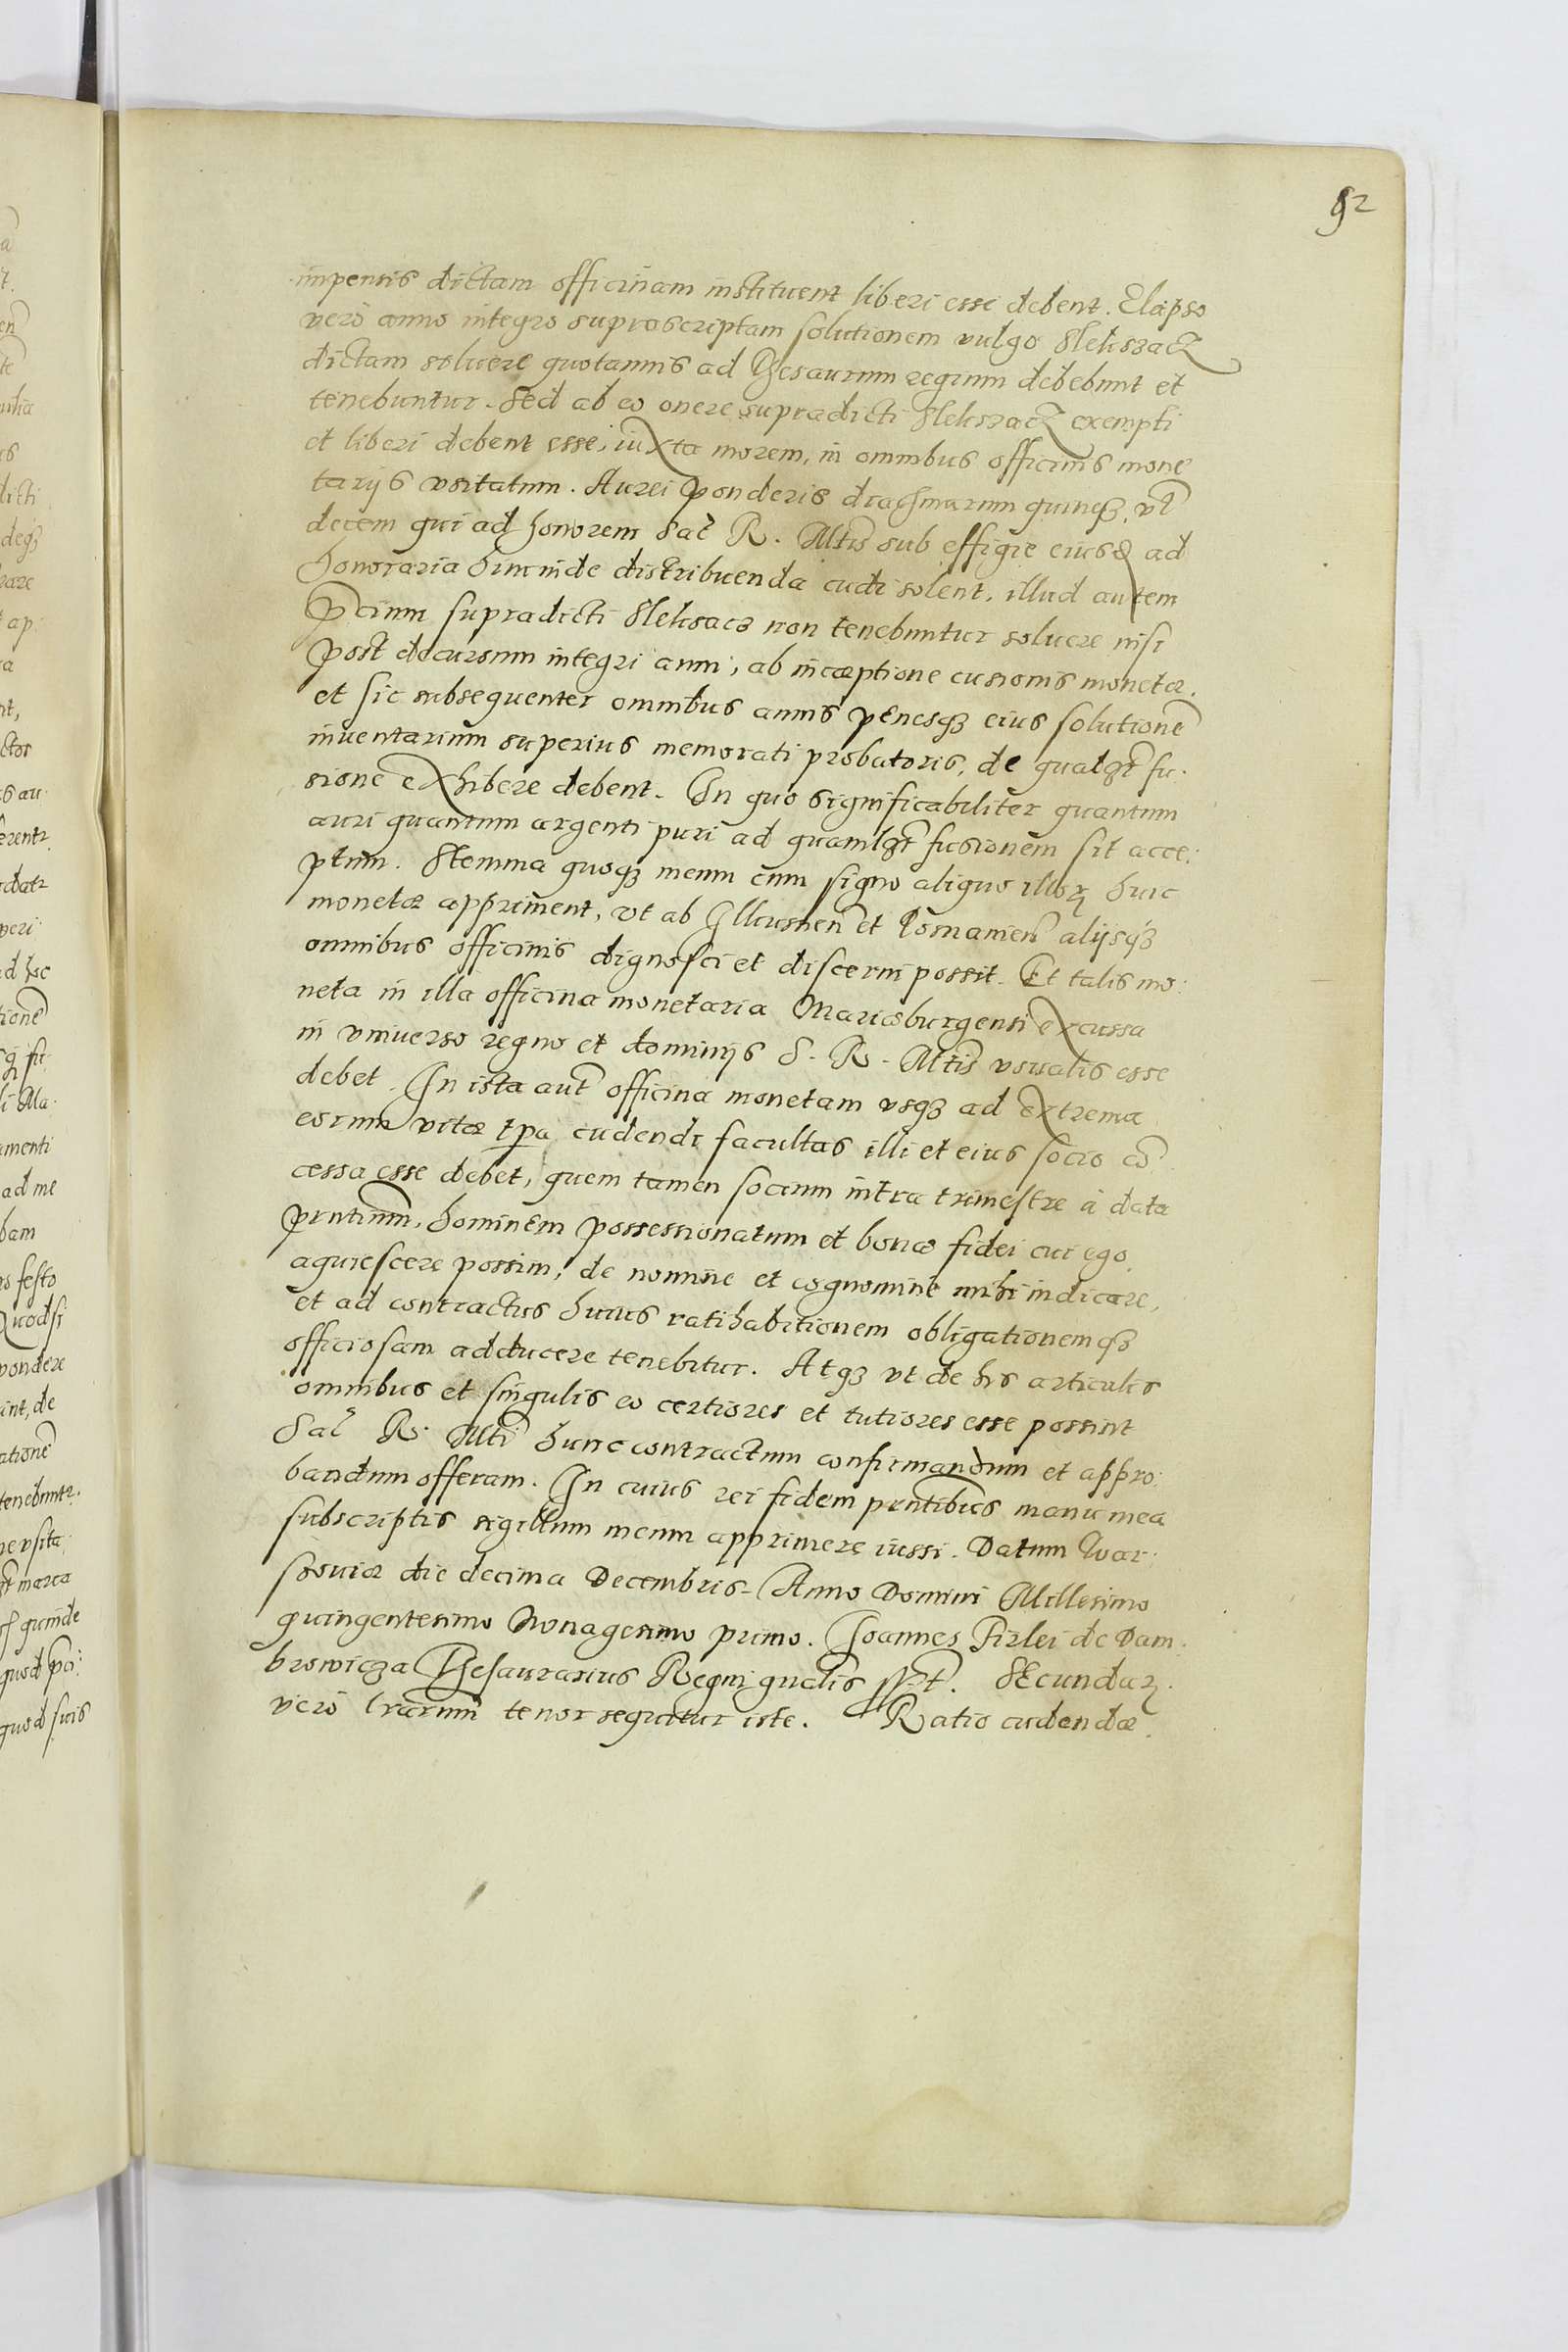 92
impensis dictam officinam instituent liberi esse debent. Elapso
vero anno integro suprascriptam solutionem vulgo Slehszacz
dictam soluere quotannis ad Thesaurum regium debebunt et
tenebuntur. Sed ab eo onere supradicti Slehszacz exempti
et liberi debent esse, iuxta morem, in omnibus officinis mone
tarijs vsitatum. Aurei ponderis drachmarum quinqꝫ, vl̃
decem qui ad honorem Sac̃ R. Mtis̃ sub effigie eiusd ad
honoraria hincinde distribuenda cudi solent, illud autem
p̃cium supradicti Slehsacz non tenebuntur soluere nisi
post decursum integri anni, ab incæptione cusionis monetæ.
et sic subsequenter omnibus annis penesqꝫ eius solutionẽ
inuentarium superius memorati probatoris, de qualꝫt̃ fu.
sione exhibere debent. In quo significabiliter quantum
auri quantum argenti puri ad quamlꝫt̃ fusionem sit acce:
ptum. Stemma quoqꝫ meum cum signo aliquo illoꝝ huic
monetæ appriment, vt ab Illcusnen̄ et Posnanien̄ alijsqꝫ
omnibus officinis dignosci et discerni possit. Et talis mo:
neta in illa officina monetaria Mariæburgensi excussa
in vniuerso regno et dominijs S. R. Mtis̃ vsualis esse
debet. In ista aut̃ officina monetam vsqꝫ ad extrema
eorum vitæ tp̃a cudendi facultas illi et eius socio cõ
cessa esse debet, quem tamen socium intra trimestre à data
pñtium, hominem possessionatum et bonæ fidei cui ego
aquiescere possim, de nomine et cognomine mihi indicare,
et ad contractus huius ratihabitionem obligationemqꝫ
officiosam adducere tenebitur. Atqꝫ vt de his articulis
omnibus et singulis eo certiores et tutiores esse possint
Sac̃ R. Mti̇̃ hunc contractum confirmandum et appro:
bandum offeram. In cuius rei fidem pñtibus manu mea
subscriptis sigillum meum apprimere iussi. Datum War:
souiæ die decima Decembris. Anno Domini Millesimo
quingentesimo Nonagesimo primo. Joannes Firlei de Dam
browicza Thesaurarius Regni gnalis̃ sspt̃. Secundaꝝ.
vero lrarum̃ tenor sequitur iste. Ratio cudendæ